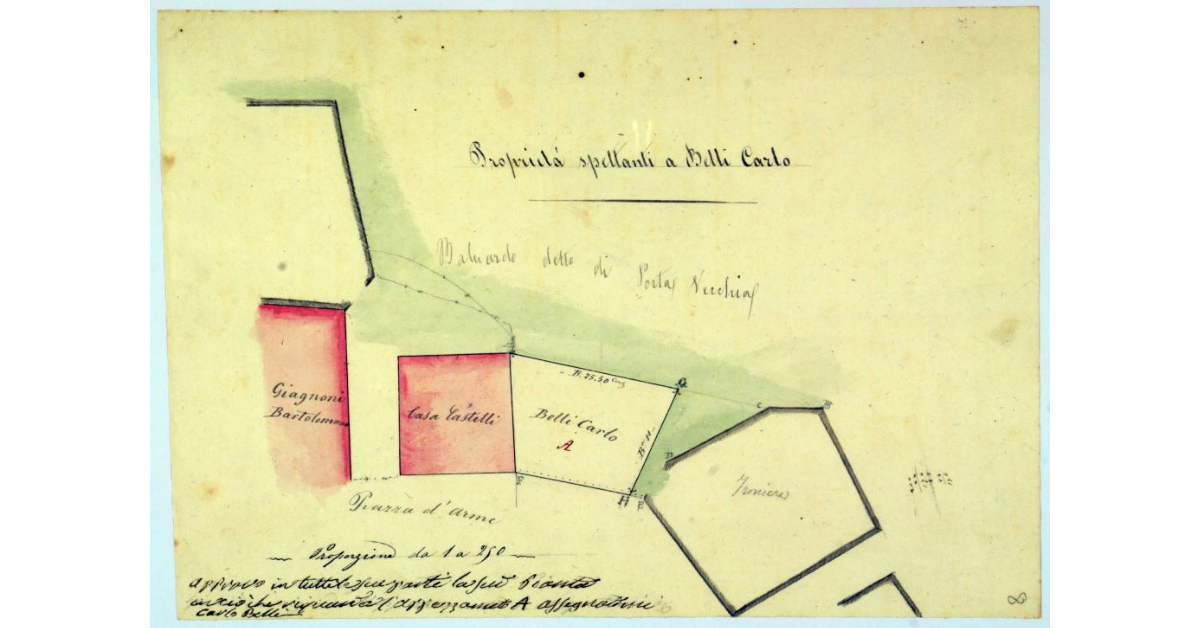 Proprietá spettanti a Belli Carlo
Baluardo detto di Porta Vecchia
B. 25.50
G
C
B
Giagnoni
Bartolomeo
Casa Castelli
Belli Carlo
A
D
F
H
E
Piazza d'arme
Proporzione da 1 a 250
approvo in tutte le sue parti la
A
Carlo Belli